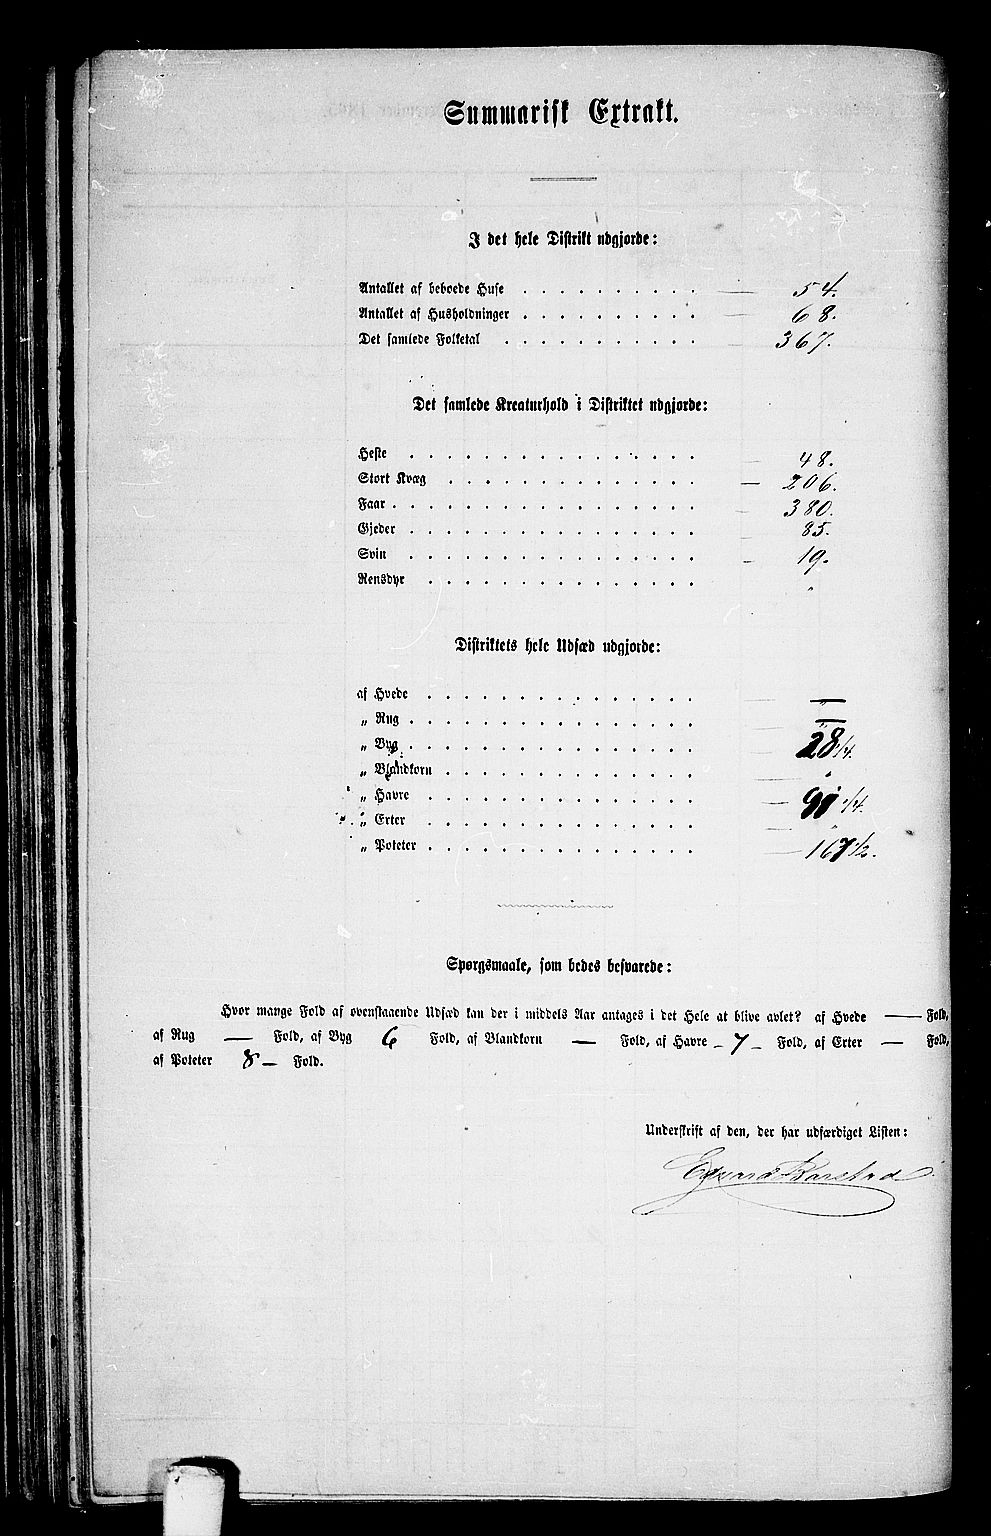 Summarisk Extrakt.
I det hele Distrikt udgjorde:
Antallet af beboede Huse . . . . . . . . . . 54.
Antallet af Husholdninger . . . . . . . . . . 68.
Det samlede Folketal . . . . . . . . . . . 367.
Det samlede Kreaturhold i Distriktet udgjorde:
Heste . . . . . . . . . . . . . . . . 48.
Stort Kvæg . . . . . . . . . . . . . . 206.
Faar . . . . . . . . . . . . . . . . . 380.
Gjeder . . . . . . . . . . . . . . . . 85.
Svin . . . . . . . . . . . . . . . . 19.
Rensdyr . . . . . . . . . . . . . . . "
Distriktets hele Udsæd udgjorde:
af Hvede . . . . . . . . . . . . . . . —
„ Rug . . . . . . . . . . . . . . . . —
„ Byg . . . . . . . . . . . . . . . . 28 1/4.
„ Blandkorn . . . . . . . . . . . . . . "
„ Havre . . . . . . . . . . . . . . .
„ Erter . . . . . . . . . . . . . . . "
„ Poteter . . . . . . . . . . . . . . . 167 1/2.
Spørgsmaale, som bedes besvarede:
Hvor mange Fold af ovenstaaende Udsæd kan der i middels Aar antages i det Hele at blive avlet? af Hvede — Fold,
af Rug — Fold, af Byg 6 Fold, af Blandkorn — Fold, af Havre 7 Fold, af Erter — Fold,
af Poteter 8 Fold.
Underskrift af den, der har udfærdiget Listen:
Edvard Karstad